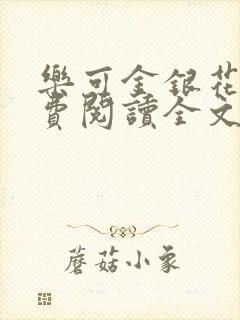 樂可金銀花
費閱讀全文
蘑菇小象